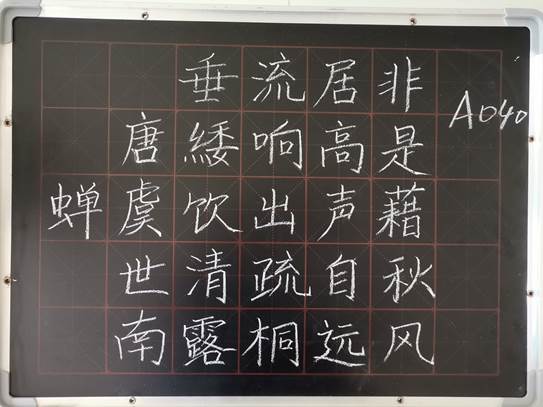 蝉
唐虞世南
垂緌饮清露
流响出疏桐
居高声自远
非是藉秋风
A040